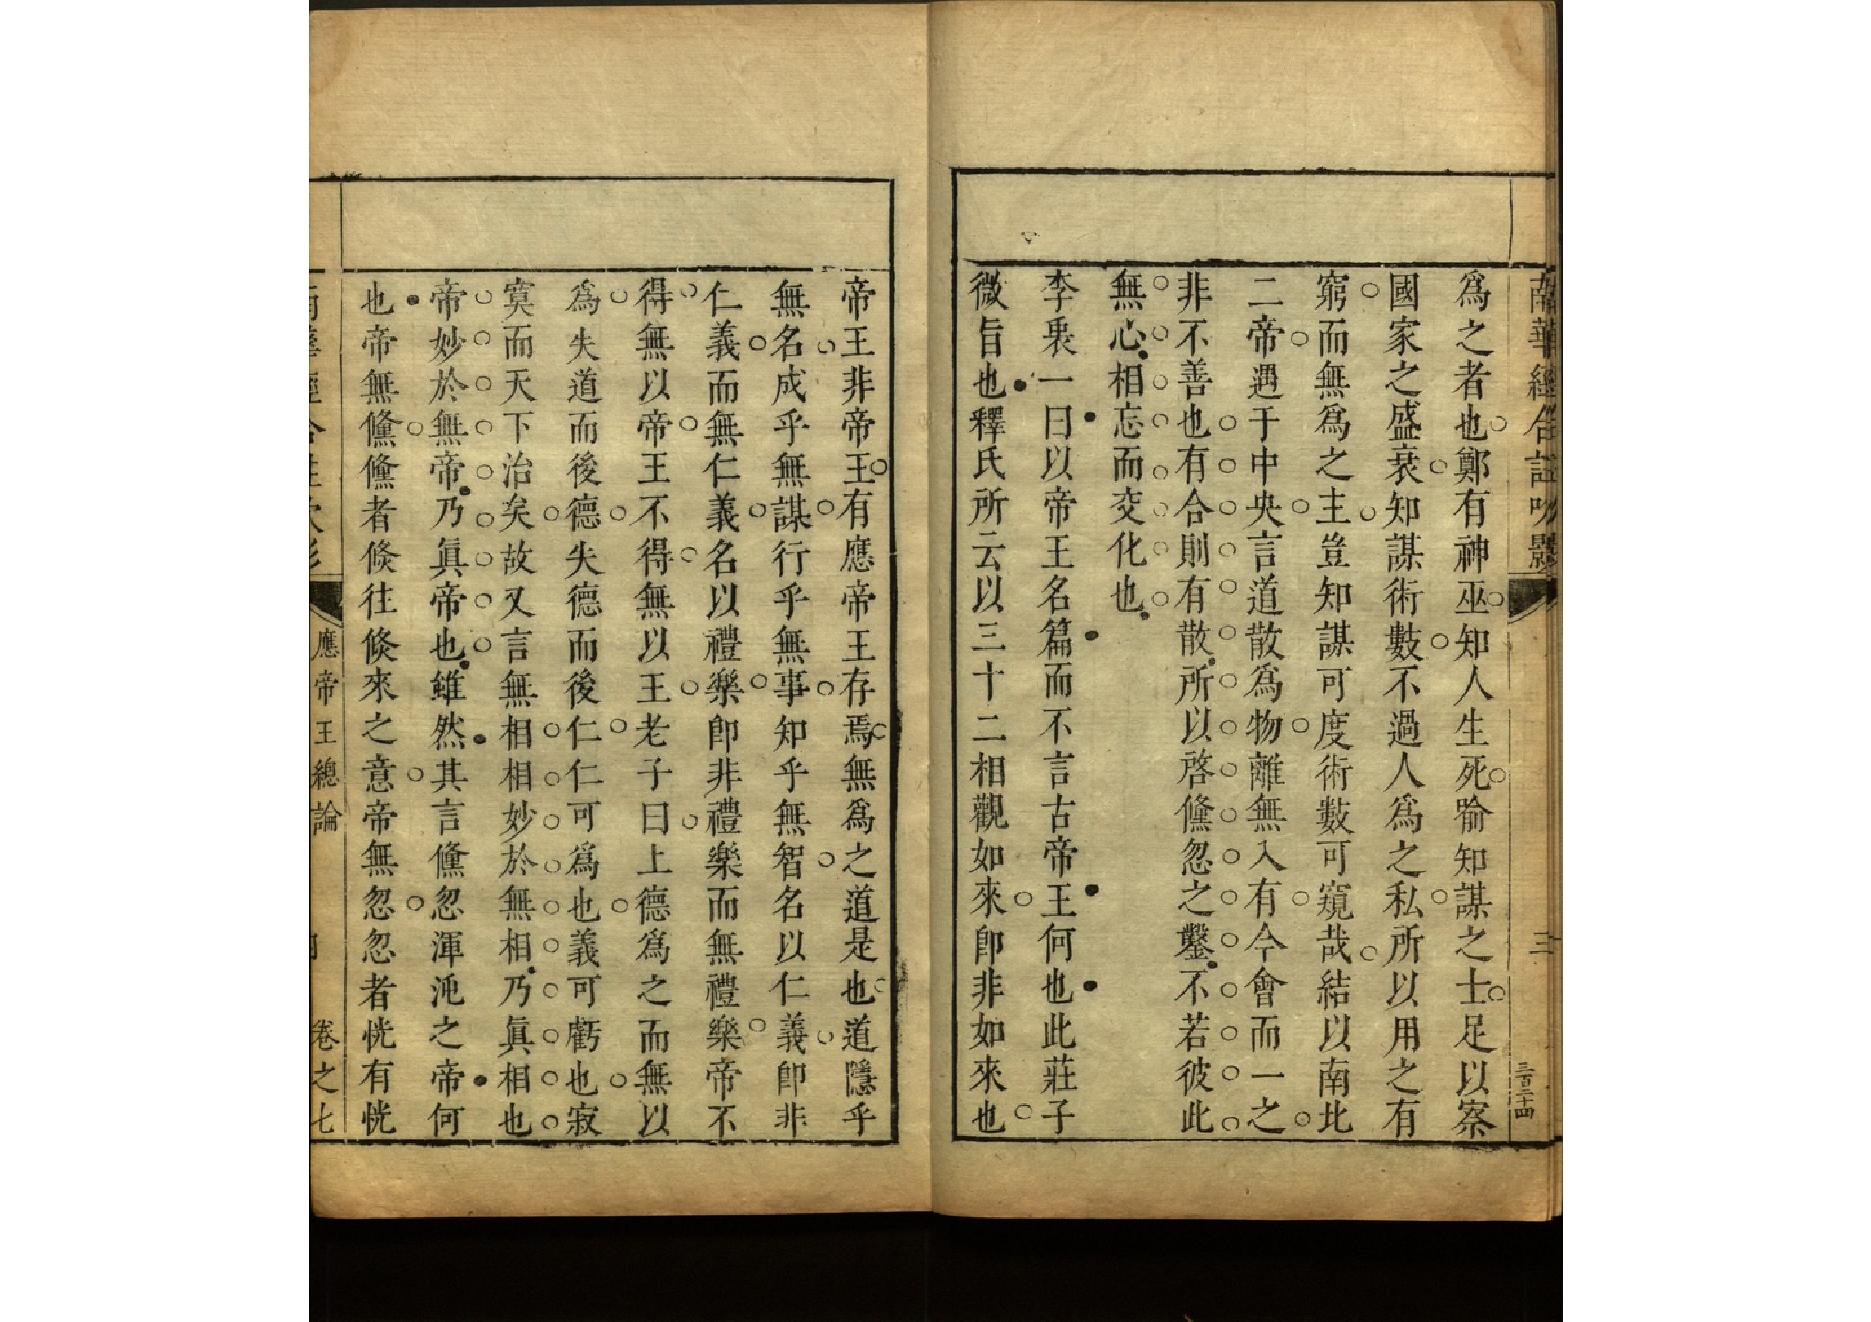 南華經合註吹影
三
三百三十四
爲之者也鄭有神巫知人生死喻知謀之士足以察
國家之盛衰知謀術數不過人爲之私所以用之有
窮而無爲之主豈知謀可度術數可窺哉結以南北
二帝遇于中央言道散爲物離無入有今會而一之
非不善也有合則有散所以啓儵忽之鑿不若彼此
無心相忘而交化也
李衷一曰以帝王名篇而不言古帝王何也此莊子
微旨也釋氏所云以三十二相觀如來卽非如來也
帝王非帝王有應帝王存焉無爲之道是也道隱乎
無名成乎無謀行乎無事知乎無智名以仁義卽非
仁義而無仁義名以禮樂卽非禮樂而無禮樂帝不
得無以帝王不得無以王老子曰上德爲之而無以
爲失道而後德失德而後仁仁可爲也義可虧也寂
寞而天下治矣故又言無相相妙於無相乃眞相也
帝妙於無帝乃眞帝也雖然其言儵忽渾沌之帝何
也帝無儵儵者倏往倏來之意帝無忽忽者恍有恍
南華經合註吹影
應帝王總論
卷之七